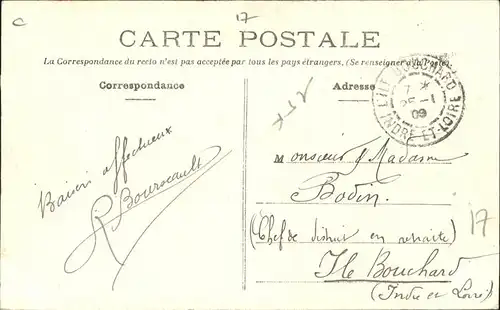 C
17
CARTE POSTALE
La Correspondance du recto n'est pas acceptée par tous les pays étrangers. (Se renseigner à la Poste.)
Correspondance
Adresse
L'ILE BOUCHARD
7 *
25 -1
09
INDRE-ET-LOIRE
x 37
Baisers affectueux
R Boursault
Monsieur & Madame
Bodin.
(Chef de district en retraite)
Ile Bouchard
(Indre et Loire)
17